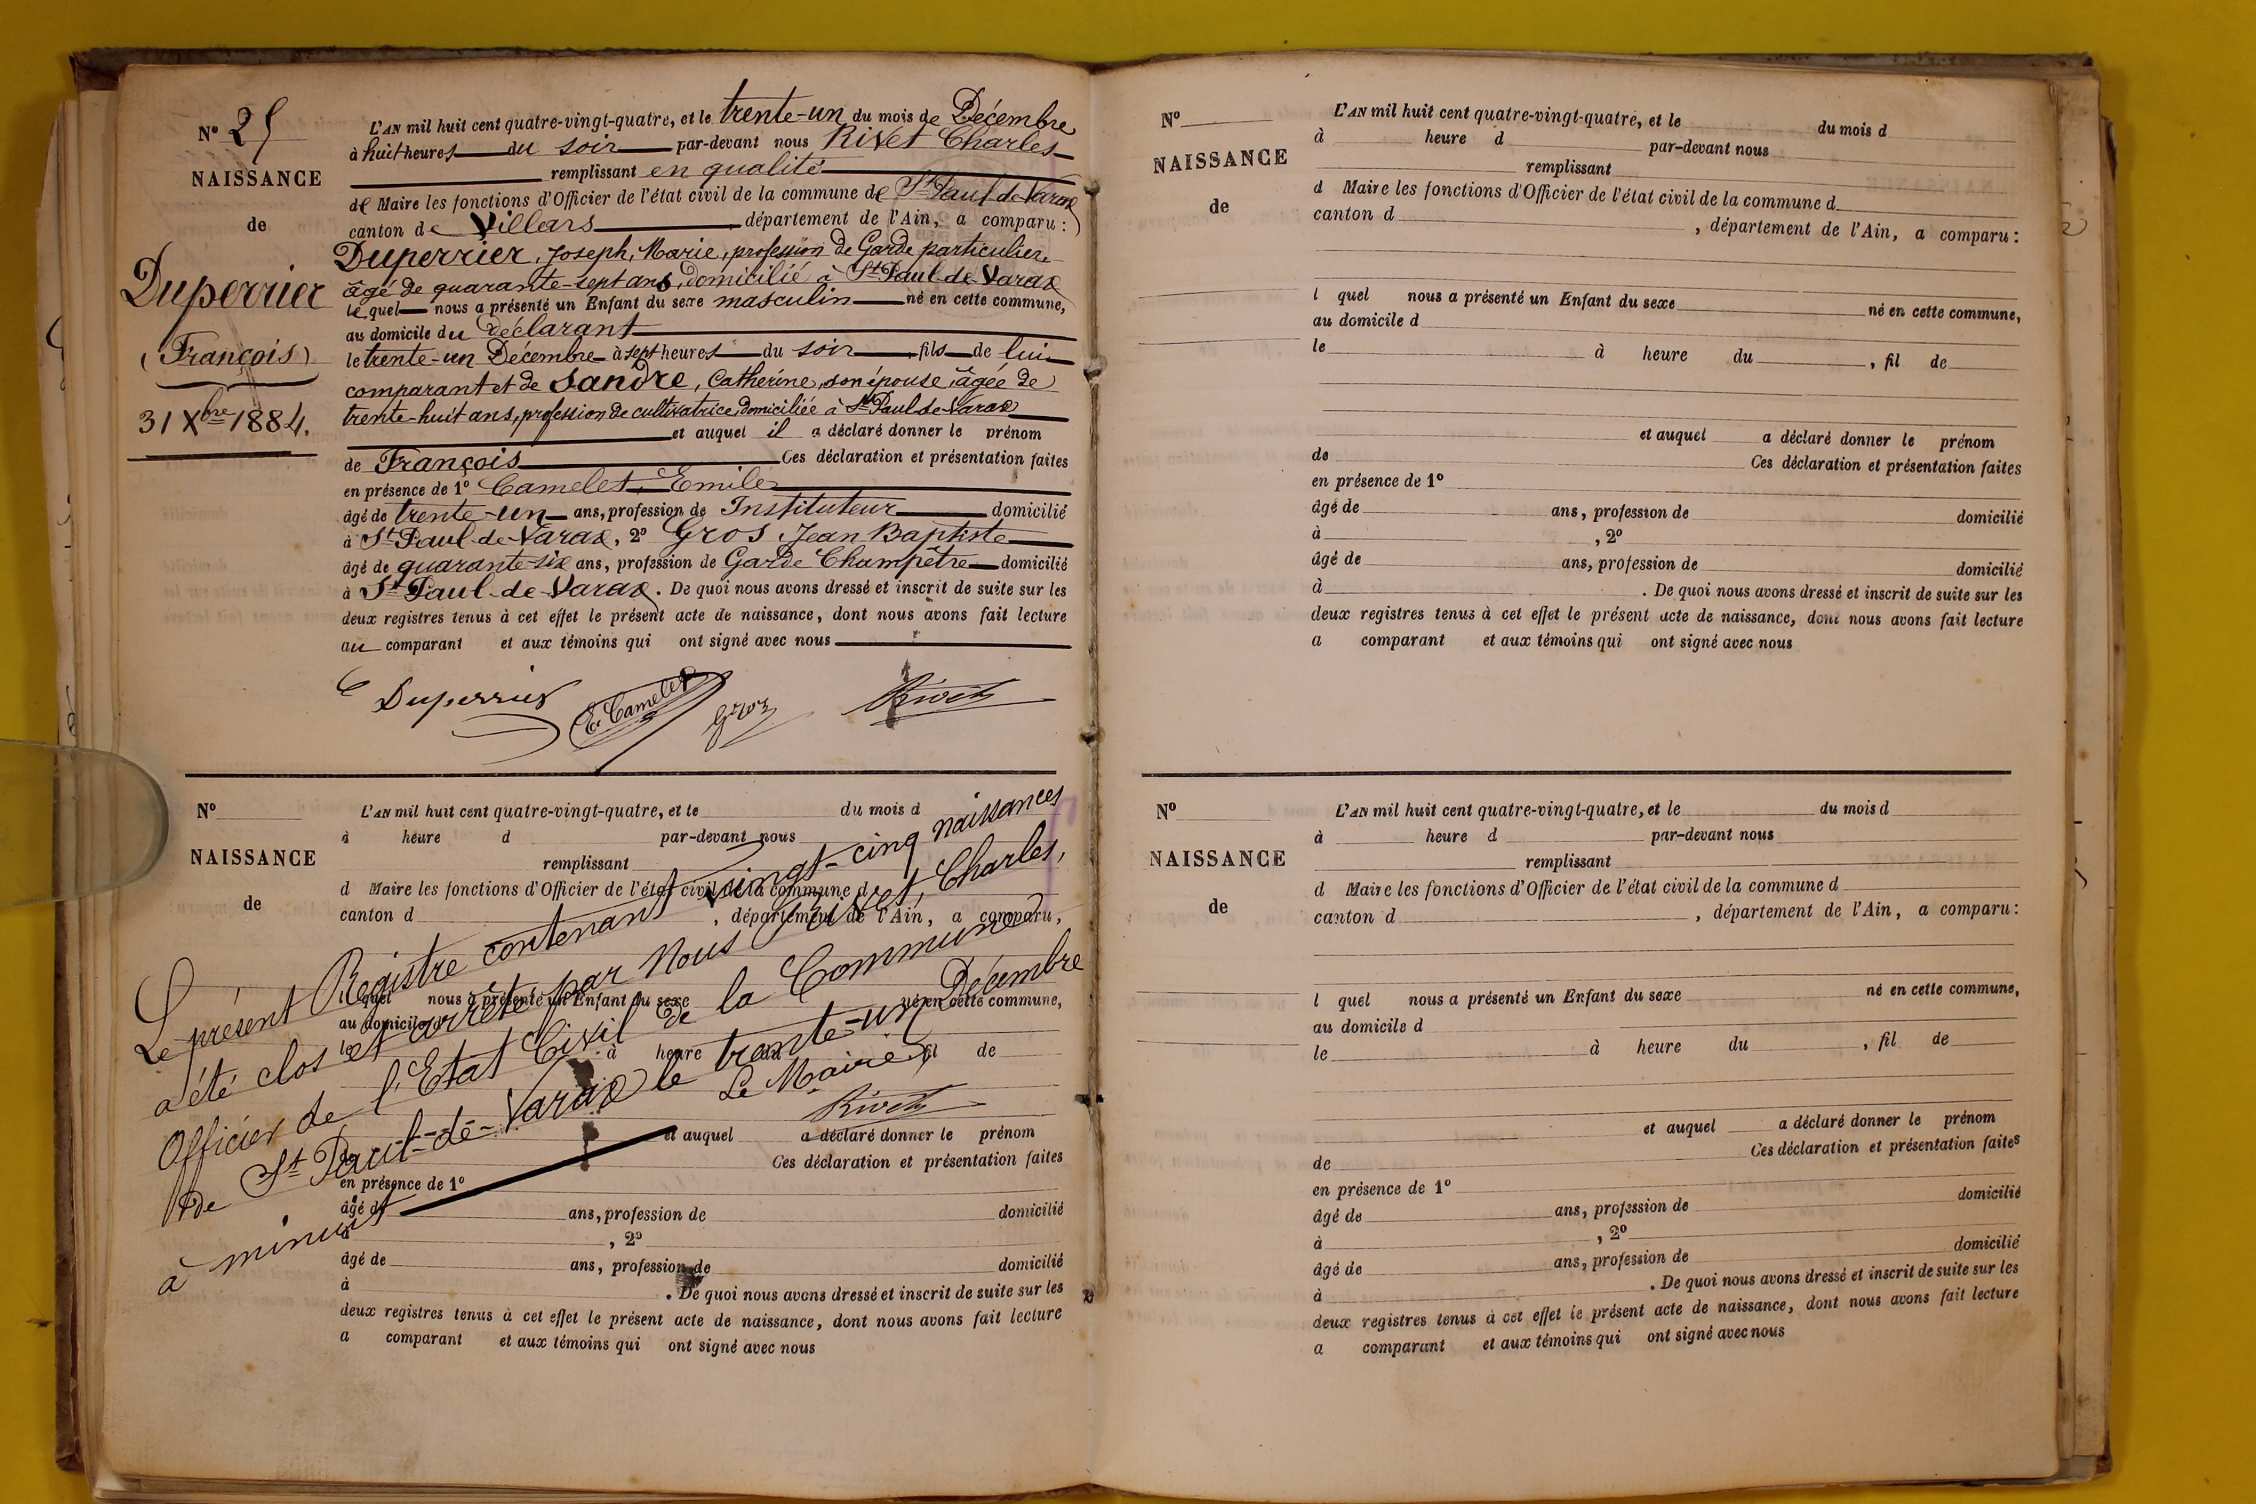 N° 25
NAISSANCE
de
Duperrier
(François)
31 Xbre 1884.
L'AN mil huit cent quatre-vingt-quatre, et le trente-un du mois de Décembre
à huit heures du soir par-devant nous Rivet Charles
remplissant en qualité
de Maire les fonctions d'Officier de l'état civil de la commune de St Paul-de-Varax
canton de Villars département de l'Ain, a comparu :
Duperrier, Joseph, Marie, profession de Garde particulier
âgé de quarante-sept ans, domicilié à St Paul-de-Varax
lequel nous a présenté un Enfant du sexe masculin né en cette commune,
au domicile du déclarant
le trente-un Décembre à sept heures du soir, fils de lui
comparant et de Sandre, Catherine, son épouse, âgée de
trente-huit ans, profession de cultivatrice, domiciliée à St Paul-de-Varax
et auquel il a déclaré donner le prénom
de François Ces déclaration et présentation faites
en présence de 1° Camelet, Emile
âgé de trente-un ans, profession de Instituteur domicilié
à St Paul-de-Varax, 2° Gros Jean Baptiste
âgé de quarante-six ans, profession de Garde Champêtre domicilié
à St Paul-de-Varax. De quoi nous avons dressé et inscrit de suite sur les
deux registres tenus à cet effet le présent acte de naissance, dont nous avons fait lecture
au comparant et aux témoins qui ont signé avec nous
Duperrier E. Camelet Gros Rivet
N°
NAISSANCE
de
L'AN mil huit cent quatre-vingt-quatre, et le du mois d
à heure d par-devant nous
remplissant
d Maire les fonctions d'Officier de l'état civil de la commune d
canton d , département de l'Ain, a comparu,
l quel nous a présenté un Enfant du sexe né en cette commune,
au domicile d
le à heure du fil de
et auquel a déclaré donner le prénom
de Ces déclaration et présentation faites
en présence de 1°
âgé de ans, profession de domicilié
à , 2°
âgé de ans, profession de domicilié
à . De quoi nous avons dressé et inscrit de suite sur les
deux registres tenus à cet effet le présent acte de naissance, dont nous avons fait lecture
a comparant et aux témoins qui ont signé avec nous
Le présent Registre contenant vingt-cinq naissances
a été clos et arrêté par Nous Rivet, Charles,
Officier de l'Etat Civil de la Commune
de St Paul-de-Varax le trente-un Décembre
à minuit
Le Maire
Rivet
N°
NAISSANCE
de
L'AN mil huit cent quatre-vingt-quatre, et le du mois d
à heure d par-devant nous
remplissant
d Maire les fonctions d'Officier de l'état civil de la commune d
canton d , département de l'Ain, a comparu :
l quel nous a présenté un Enfant du sexe né en cette commune,
au domicile d
le à heure du , fil de
et auquel a déclaré donner le prénom
de Ces déclaration et présentation faites
en présence de 1°
âgé de ans, profession de domicilié
à , 2°
âgé de ans, profession de domicilié
à . De quoi nous avons dressé et inscrit de suite sur les
deux registres tenus à cet effet le présent acte de naissance, dont nous avons fait lecture
a comparant et aux témoins qui ont signé avec nous
N°
NAISSANCE
de
L'AN mil huit cent quatre-vingt-quatre, et le du mois d
à heure d par-devant nous
remplissant
d Maire les fonctions d'Officier de l'état civil de la commune d
canton d , département de l'Ain, a comparu :
l quel nous a présenté un Enfant du sexe né en cette commune,
au domicile d
le à heure du , fil de
et auquel a déclaré donner le prénom
de Ces déclaration et présentation faites
en présence de 1°
âgé de ans, profession de domicilié
à , 2°
âgé de ans, profession de domicilié
à . De quoi nous avons dressé et inscrit de suite sur les
deux registres tenus à cet effet le présent acte de naissance, dont nous avons fait lecture
a comparant et aux témoins qui ont signé avec nous